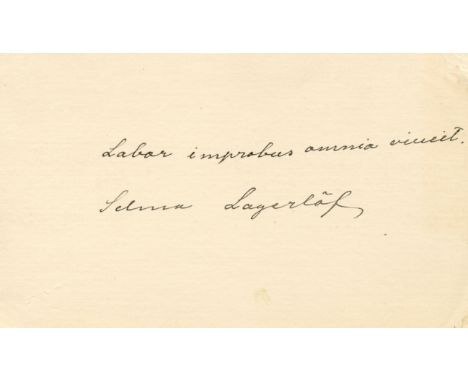 Labor improbus omnia vincit.
Selma Lagerlöf